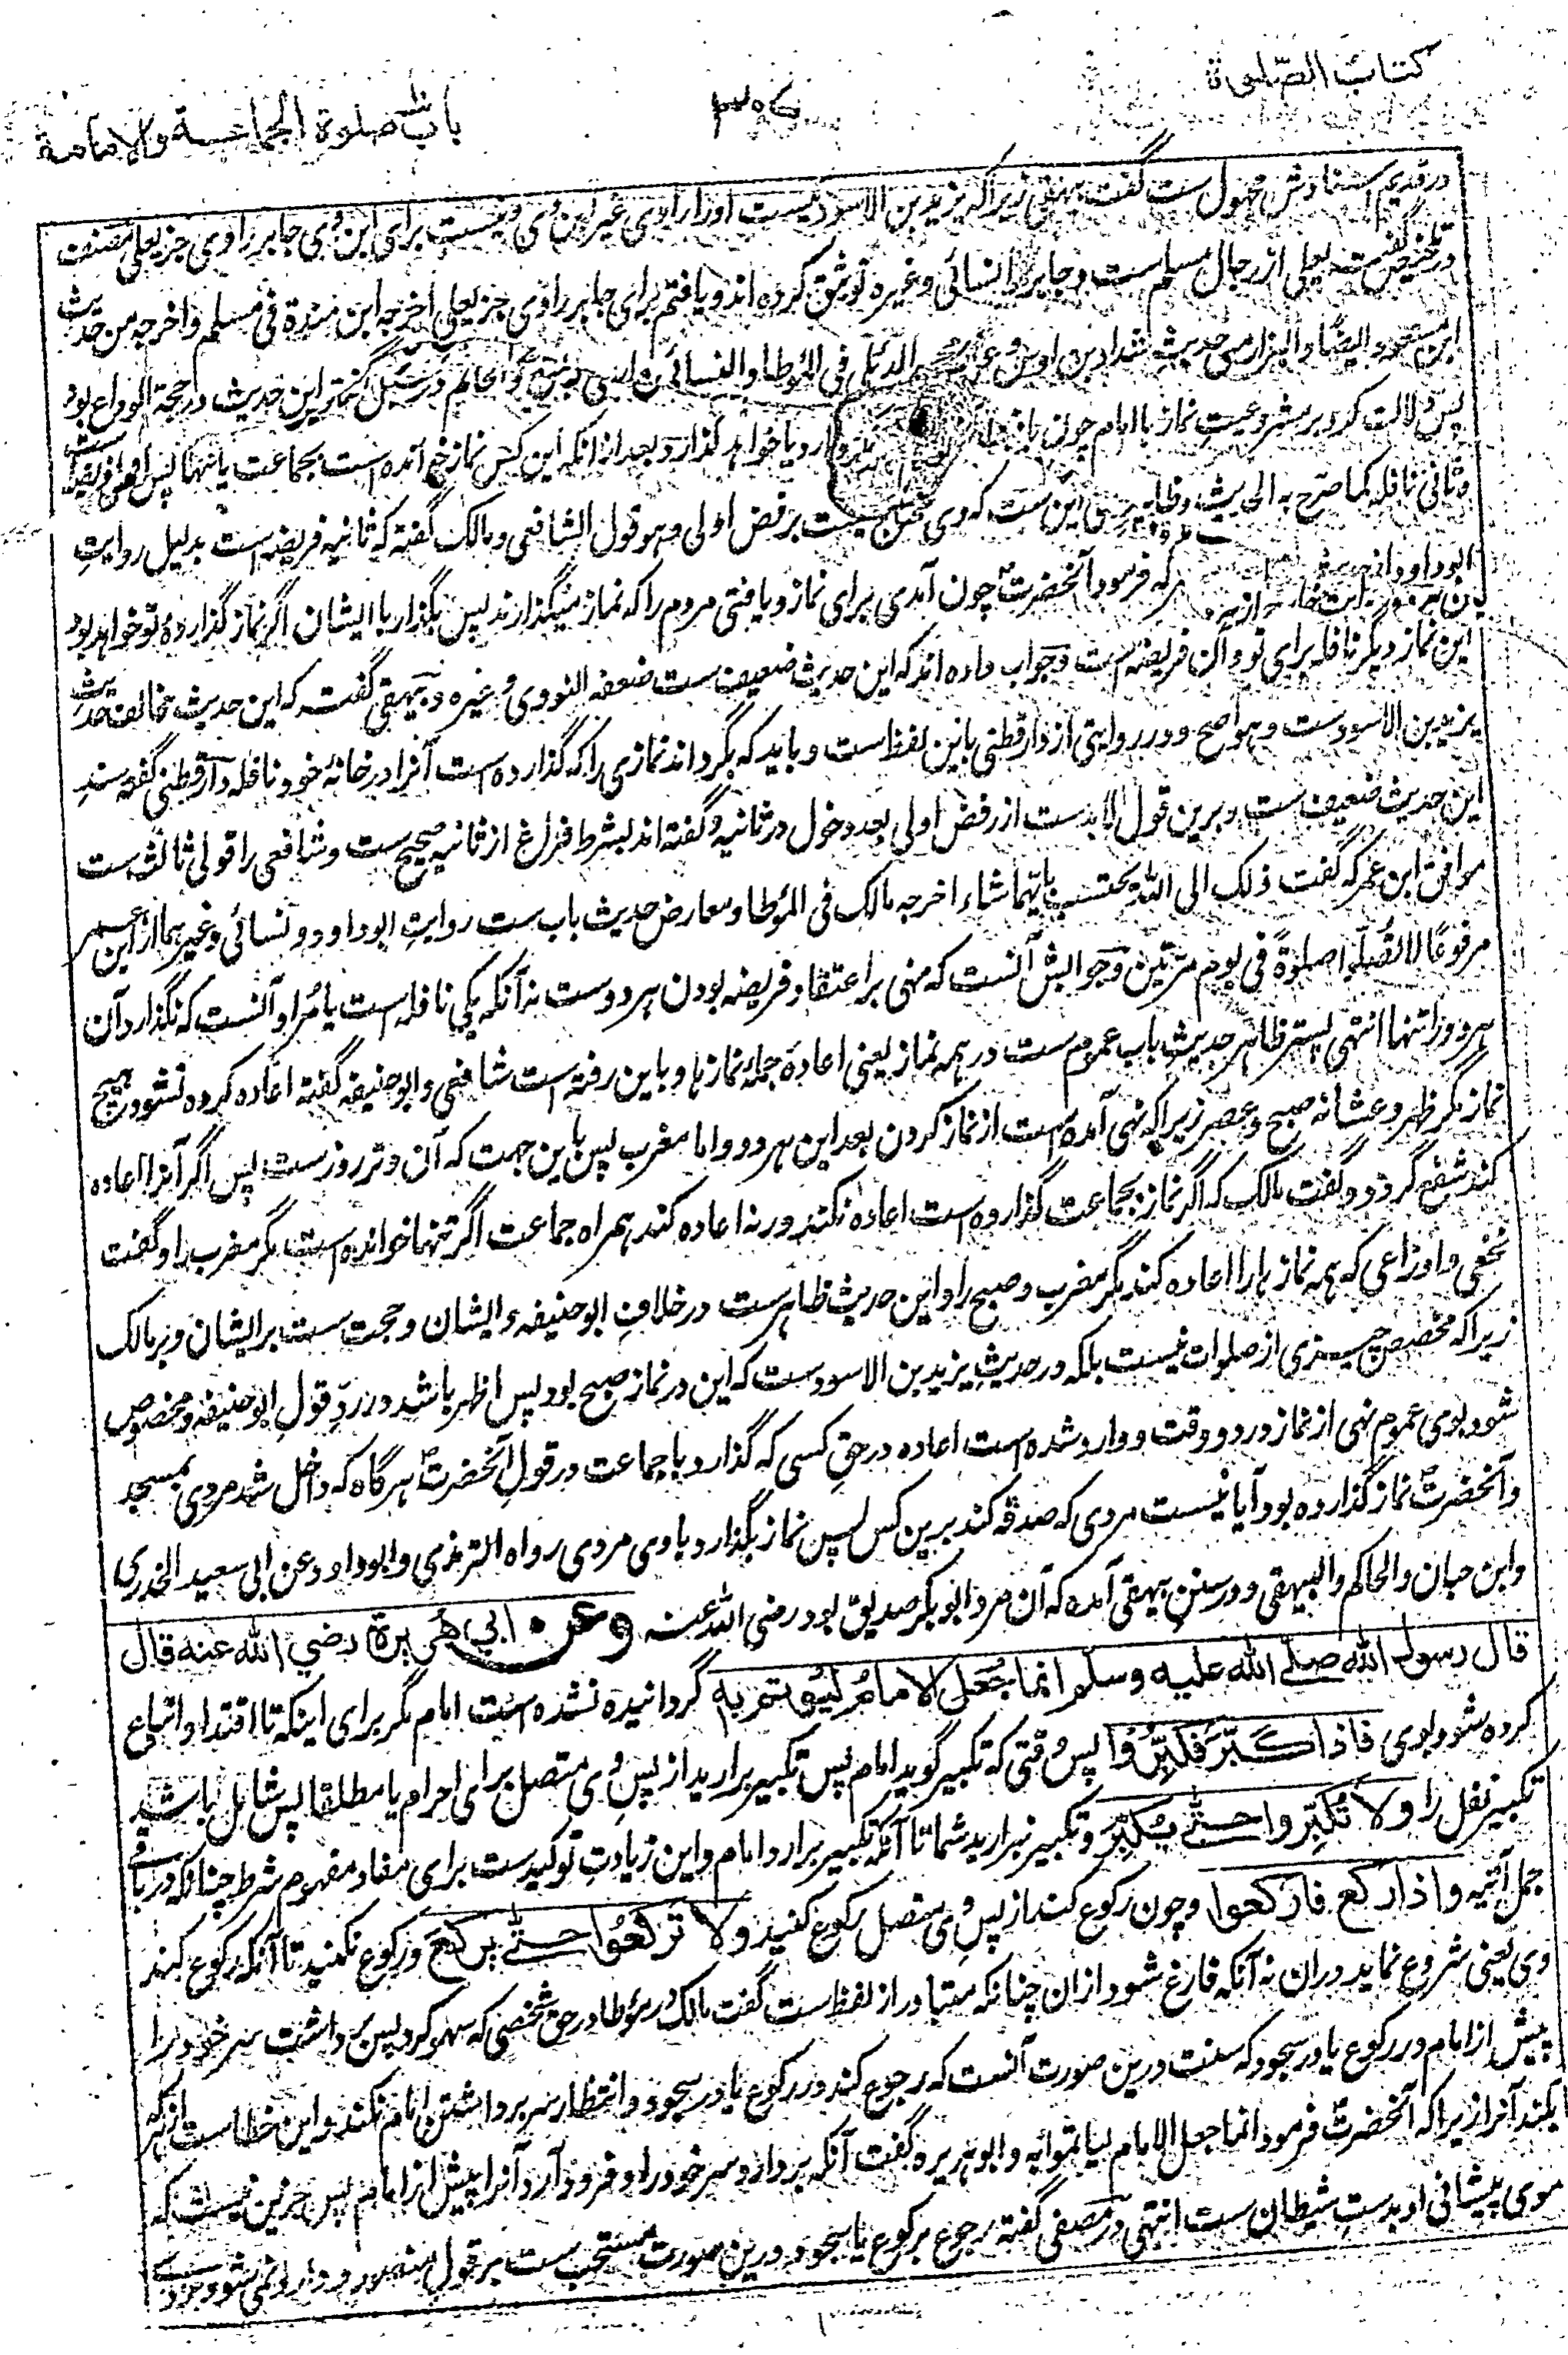 کتاب الصّلوة
۳۰۷
باب صلوة الجماعة والامامة
در قدیم اسنادش مجهول ست گفت بیهقی زیراکه یزید بن الاسود نیست اورا راوی غیر ابن وی و نیست برای ابن وی جابر راوی جز یعلی مصنف
در تلخیص گفته یعلی از رجال مسلم ست و جابر را نسائی وغیره توثیق کرده اند و یافتم برای جابر راوی جز یعلی اخرجه ابن مندة فی مسلم و اخرجه من حدیث
الدئلی فی المؤطا والنسائی وابن حبان والحاکم در سبل گفته این حدیث در حجة الوداع بود
پس دلالت کرد بر مشروعیت نماز با امام چون یا خواهد گذارد بعد ازانکه این کس نماز خود آمده ست بجماعت یا تنها پس اولی فریضه
و ثانی نافله کما صرح به الحدیث و ظاهر این ست که وی محتاج نیست برفض اولی و هو قول الشافعی و مالک گفته که ثانیه فریضه ست بدلیل روایت
ابو داود از حدیث که فرمود آنحضرتؐ چون آمدی برای نماز و یافتی مردم را که نماز میگذارند پس بگذار با ایشان اگر نماز گذارده تو خواهد بود
این نماز دیگر نافله برای تو و آن فریضه ست و جواب داده اند که این حدیث ضعیف ست ضعفه النووی وغیره و بیهقی گفت که این حدیث مخالف حدیث
یزید بن الاسودست و هو اصح و در روایتی از دارقطنی باین لفظ ست و باید که بگرداند نمازی را که گذارده ست آنرا در خانهٔ خود نافله دارقطنی گفته سند
این حدیث ضعیف ست و برین قول لابدست از رفض اولی بعد دخول در ثانیه و گفته اند بشرط فراغ از ثانیه صحیح ست و شافعی را قولی ثالث ست
موافق ابن عمر که گفت ذلک الی الله یحتسب بایهما شاء اخرجه مالک فی المؤطا و معارض حدیث باب ست روایت ابوداود و نسائی وغیرهما از ابن عمر
مرفوعًا لا تُصلّوا صلوةً فی یومٍ مرتین و جوابش آنست که منهی بر اعتقاد فریضه بودن هر دوست نه آنکه یکی نافله ست یا مراد آنست که نگذارد آن
هر دو را تنها انتهی پستر ظاهر حدیث باب عموم ست در همه نماز یعنی اعادهٔ جمله نمازها و باین رفته ست شافعی و ابوحنیفه گفته اعاده کرده نشود هیچ
نماز مگر ظهر و عشا نه صبح و عصر زیراکه نهی آمده ست از نماز کردن بعد این هر دو و اما مغرب پس باین جهت که آن وتر روزست پس اگر آنرا اعاده
کند شفع گردد و گفت مالک که اگر نماز بجماعت گذارده ست اعاده نکند ورنه اعاده کند همراه جماعت اگر تنها خوانده ست مگر مغرب را و گفت
نخعی و اوزاعی که همه نمازها را اعاده کند مگر مغرب و صبح را و این حدیث ظاهرست در خلاف ابوحنیفه و ایشان و حجت ست بر ایشان و بر مالک
زیراکه مخصص چیزی از صلوات نیست بلکه در حدیث یزید بن الاسودست که این در نماز صبح بود پس اظهر باشد در ردّ قول ابوحنیفه و مخصوص
شود بوی عموم نهی از نماز در دو وقت و وارد شده ست اعاده در حق کسی که گذارد با جماعت در قول آنحضرتؐ هرگاه که داخل شد مردی بمسجد
و آنحضرتؐ نماز گذارده بود آیا نیست مردی که صدقه کند برین کس پس نماز بگذارد باوی مردی رواه الترمذی و ابوداود عن ابی سعید الخدری
وابن حبان والحاکم والبیهقی و در سنن بیهقی آمده که آن مرد ابو بکر صدیق بود رضی الله عنه وعن ابی هریرة رضی الله عنه قال
قال رسول الله صلی الله علیه وسلم انما جُعل الامامُ لیُؤتم به گردانیده نشده ست امام مگر برای اینکه تا اقتدا و اتباع
کرده شود بوی فاذا کبّر فکبّروا پس وقتی که تکبیر گوید امام پس تکبیر برارید از پس وی متصل برای احرام یا مطلقا پس شامل باشد
تکبیر نقل را ولا تُکبّروا حتّٰی یُکبّر و تکبیر نبرارید شما تا آنکه تکبیر برارد امام و این زیادت توکیدست برای مفاد مفهوم شرط چنانکه در باقی
جمل آتیه واذا رکع فارکعوا و چون رکوع کند از پس وی متصل رکوع کنید ولا ترکعُوا حتّٰی یرکع و رکوع نکنید تا آنکه رکوع کند
وی یعنی شروع نماید دران نه آنکه فارغ شود ازان چنانکه متبادر از لفظ ست گفت مالک در مؤطا در حق شخصی که سهو کرد پس برداشت سر خود را
پیش از امام در رکوع یا در سجود که سنت درین صورت آنست که رجوع کند در رکوع یا در سجود و انتظار سر برداشتن امام نکند و این خطاست ازانکه
بکند آنرا زیراکه آنحضرتؐ فرمود انما جعل الامام لیاتموا به و ابوهریره گفت آنکه بردارد سر خود را و فرود آرد آنرا پیش از امام پس جز این نیست که
موی پیشانی او بدست شیطان ست انتهی در مصفی گفته رجوع برکوع یا سجود درین صورت مستحب ست بر قول منصور و وارد نمی شود